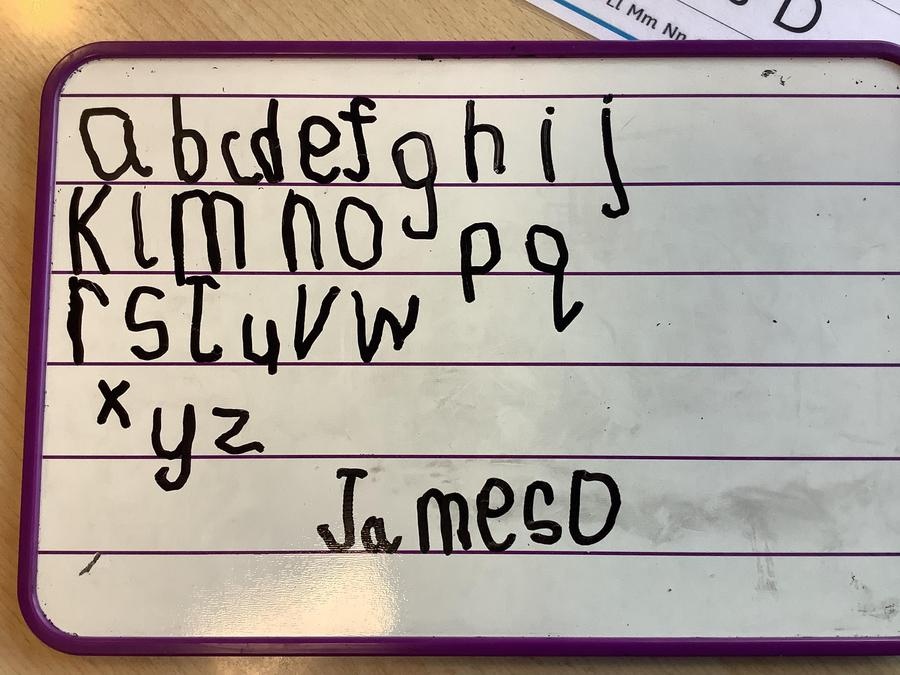 Ll Mm Nn
D
a b c d e f g h i j
K l m n o p q
r s t u v w
x y z
James D